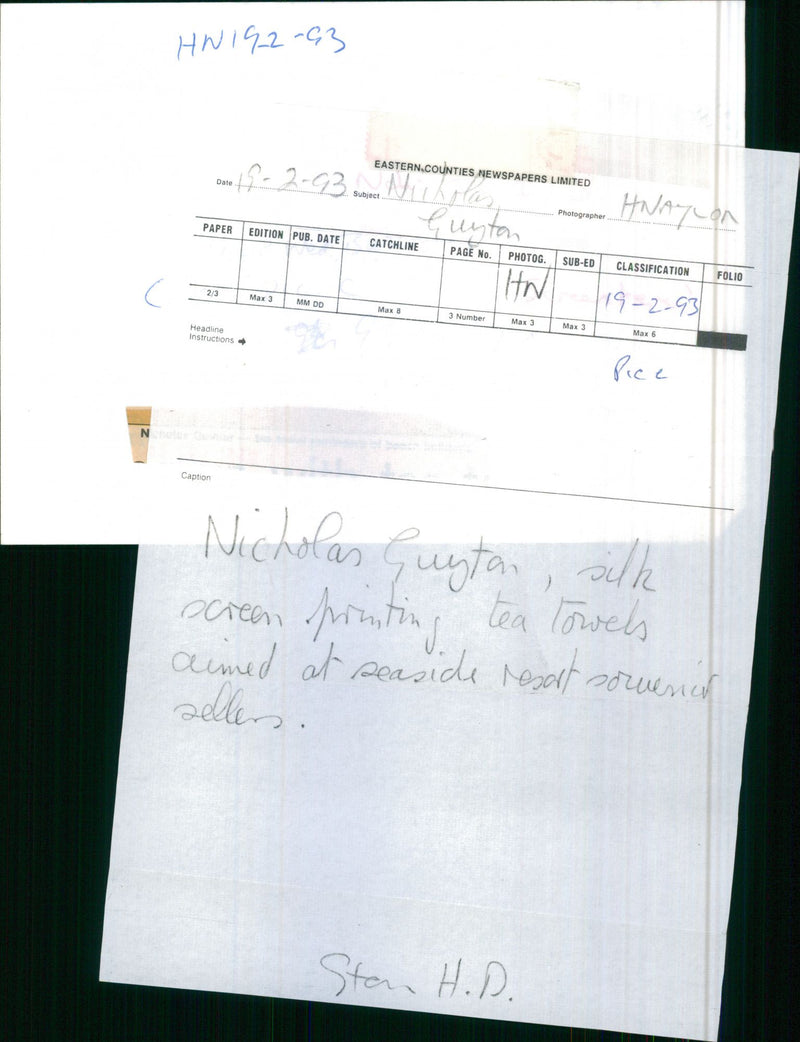 HN192-93
EASTERN COUNTIES NEWSPAPERS LIMITED
Date 19-2-93 Subject Nicholas Guyton Photographer HNAYLOR
PAPER EDITION PUB. DATE CATCHLINE PAGE No. PHOTOG. SUB-ED CLASSIFICATION FOLIO
HN 19-2-93
2/3 Max 3 MM DD Max 8 3 Number Max 3 Max 3 Max 6
Headline
Instructions
N
Caption
Nicholas Guyton, silk
screen printing tea towels
aimed at seaside resort souvenir
sellers.
Stan H.D.